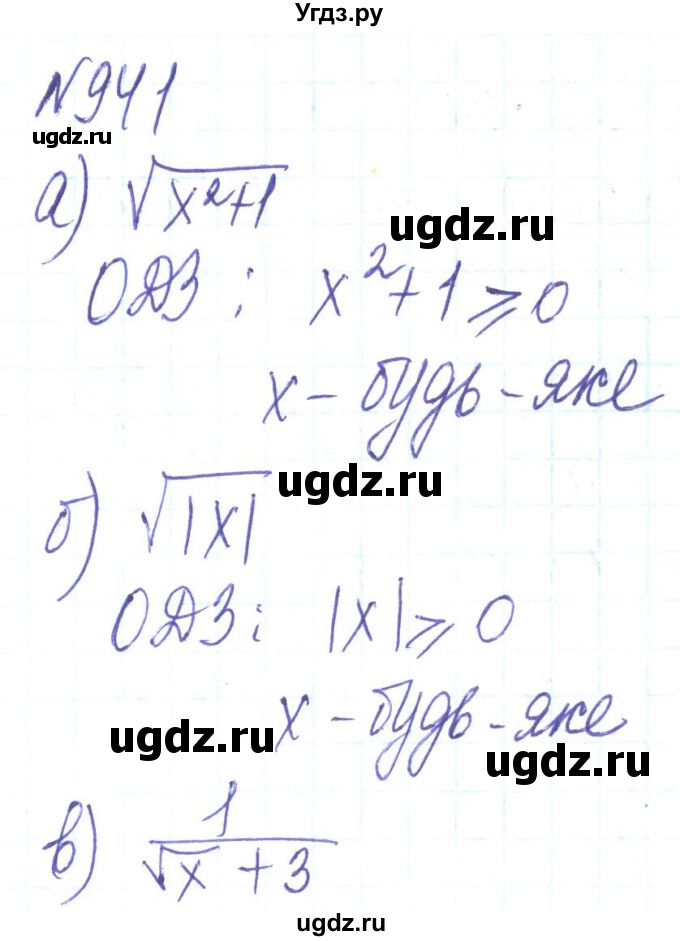 Угдз.ру
№941
ugdz.ru
а) √x²+1
ugdz.ru
ОДЗ: x²+1⩾0
x - будь-яке
ugdz.ru
б) √|x|
ОДЗ: |x|⩾0
x - будь-яке
ugdz.ru
ugdz.ru
в) 1/(√x + 3)
ugdz.ru